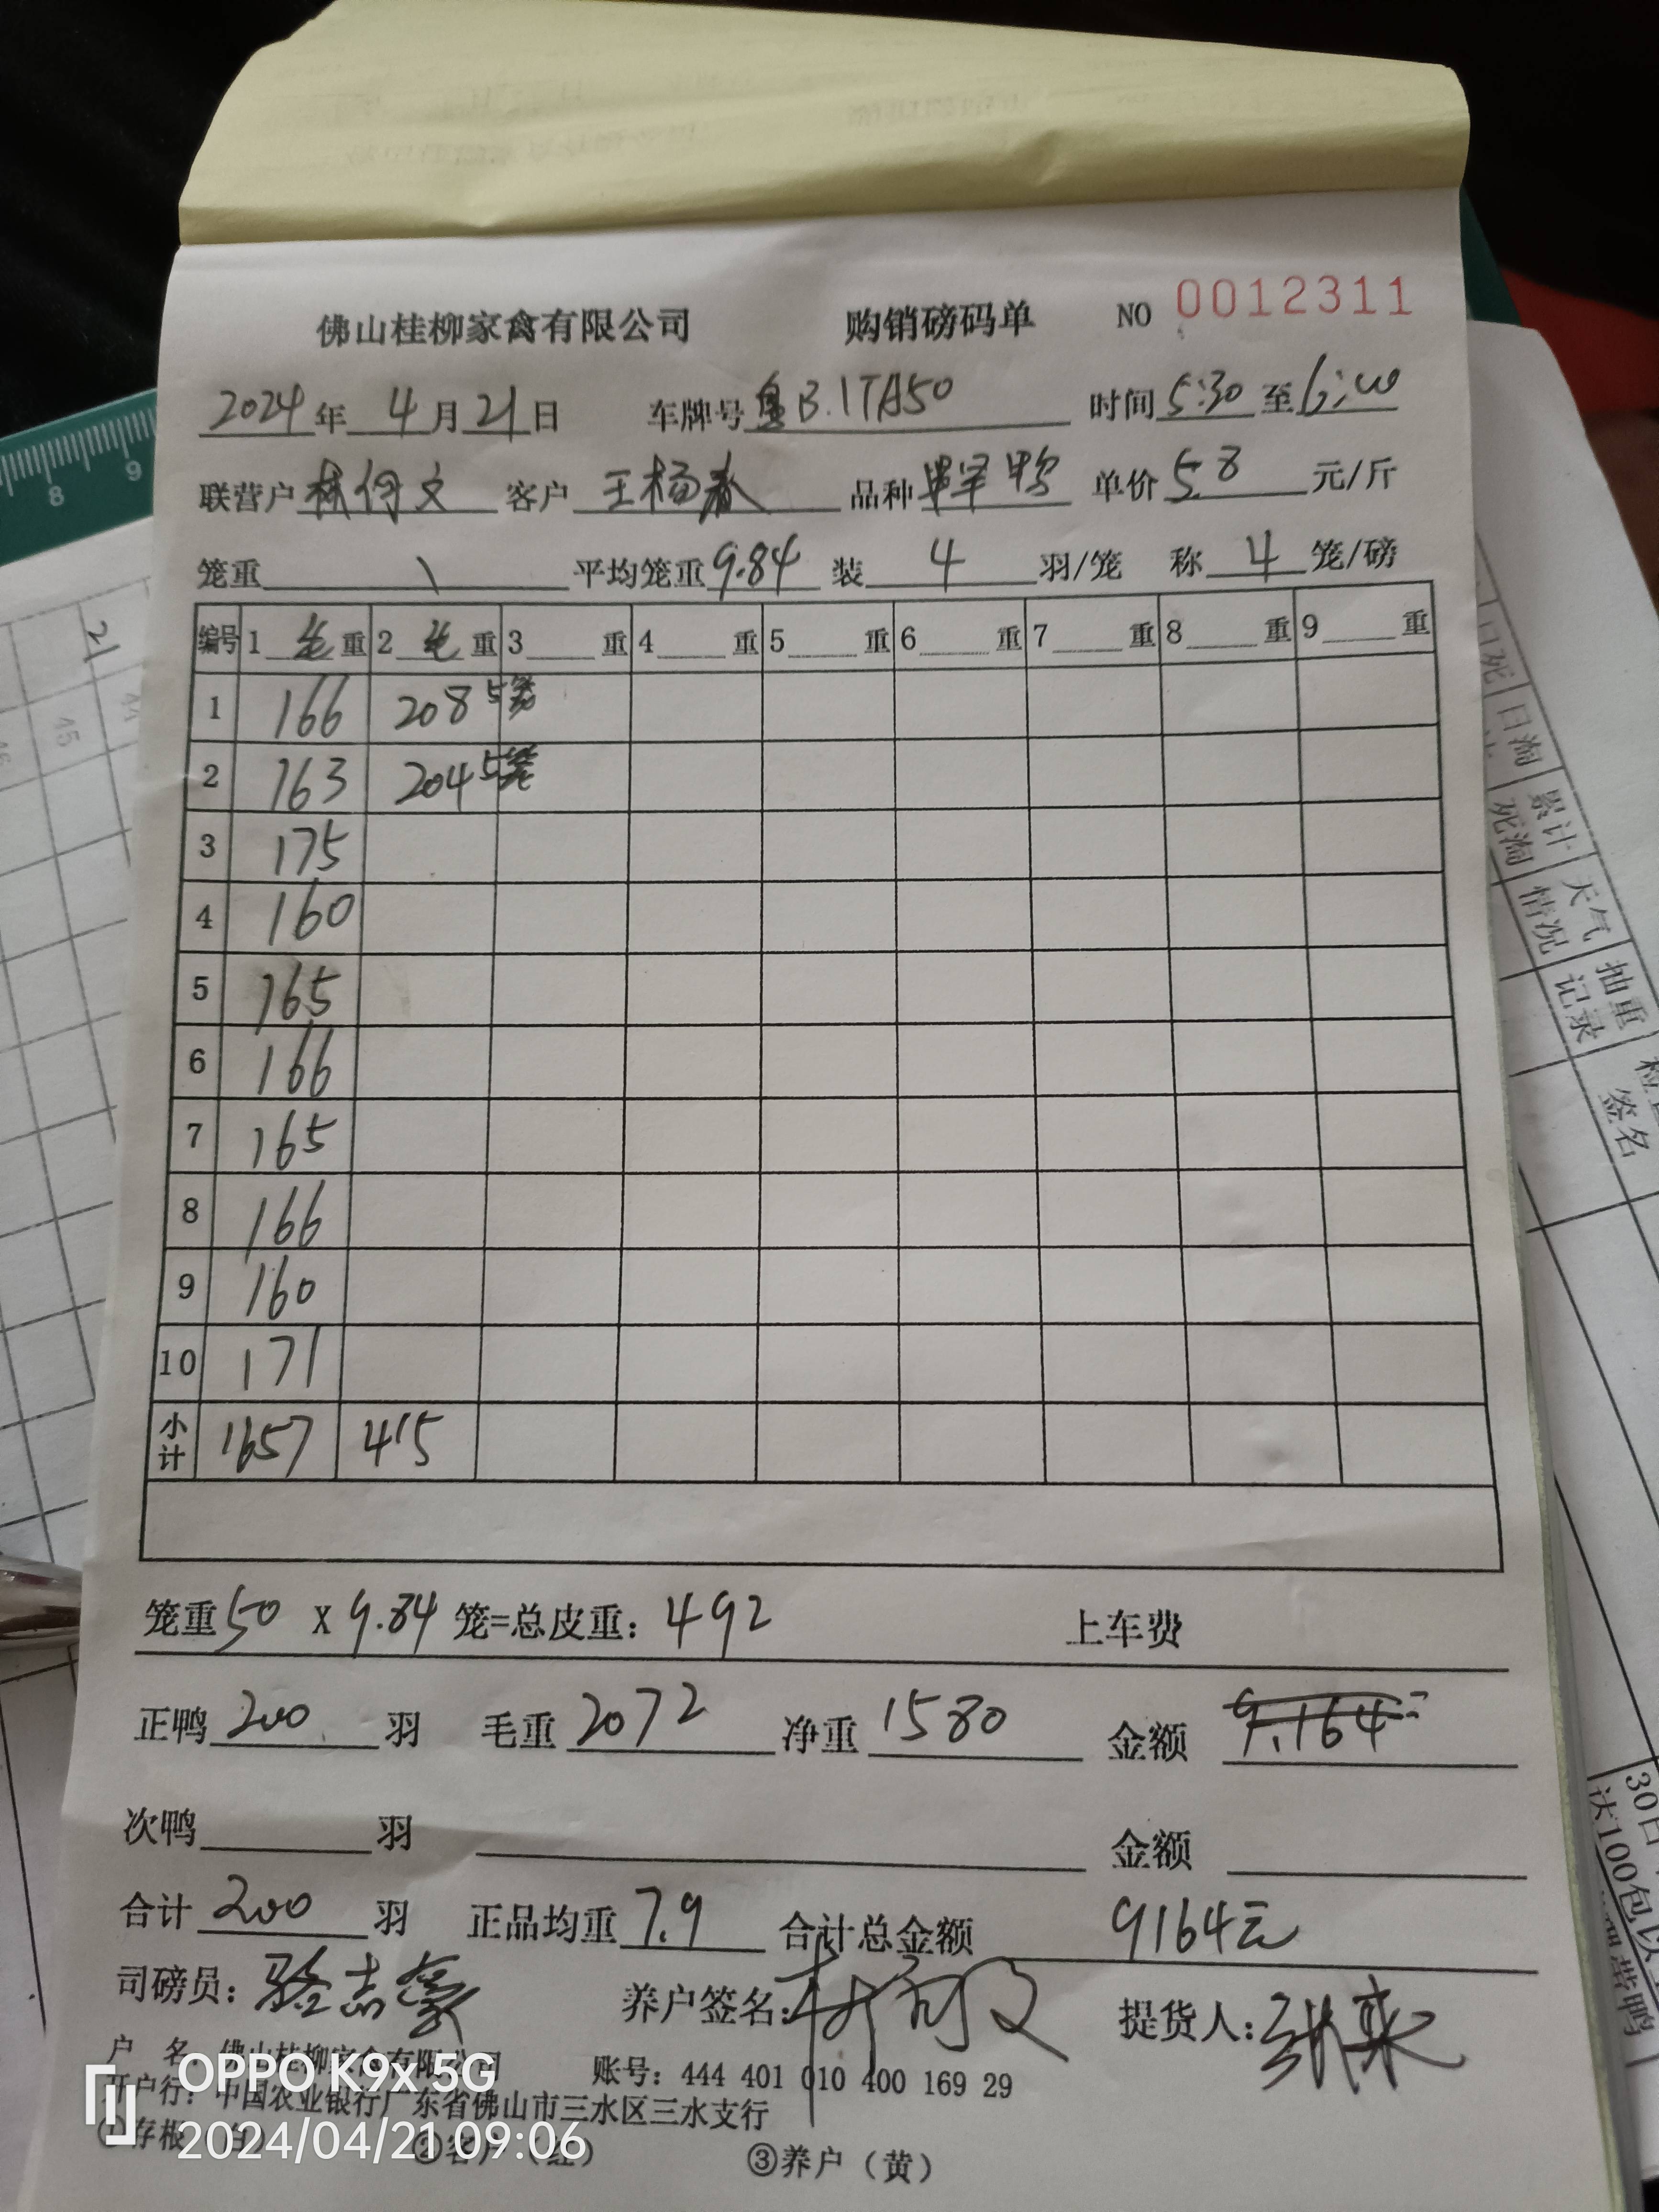 佛山桂柳家禽有限公司 购销磅码单 NO 0012311
2024年 4月21日 车牌号 粤B.1TA50 时间 5:30 至 6:00
联营户 林何文 客户 王杨春 品种 单价 5.8 元/斤
笼重 \ 平均笼重 9.84 装 4 羽/笼 称 4 笼/磅
编号 1 毛 重 2 毛 重 3 重 4 重 5 重 6 重 7 重 8 重 9 重
1 166 208 5笼
2 163 204 5笼
3 175
4 160
5 165
6 166
7 165
8 166
9 160
10 171
小计 1657 415
笼重 50 X 9.84 笼=总皮重: 492 上车费
正鸭 200 羽 毛重 2072 净重 1580 金额 9.164
次鸭 羽 金额
合计 200 羽 正品均重 7.9 合计总金额 9164元
司磅员: 骆志豪 养户签名: 林何文 提货人:
户 名 佛山桂柳家禽有限公司 账号: 444 401 010 400 169 29
开户行: 中国农业银行广东省佛山市三水区三水支行
①存根(白) ②客户(红) ③养户(黄)
OPPO K9x 5G
2024/04/21 09:06
8 9
21
45
44
46
日死
日淘
累计
死淘
天气
情况
抽重
记录
签名
30日
达100包以